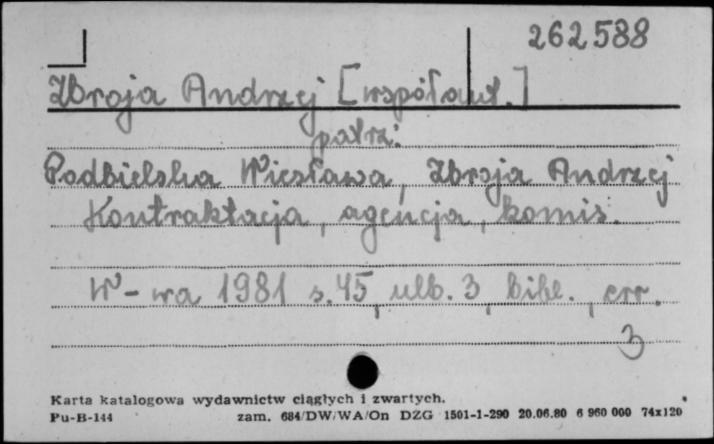 262588
Zbroja Andrzej [współaut.]
patrz:
Podbielska Wiesława, Zbroja Andrzej
Kontraktacja, agencja, komis.
W-wa 1981 s. 45, ulb. 3, bibl., err.
3
Karta katalogowa wydawnictw ciągłych i zwartych.
Pu-B-144 zam. 684/DW/WA/On DZG 1501-1-290 20.06.80 6 960 000 74x120